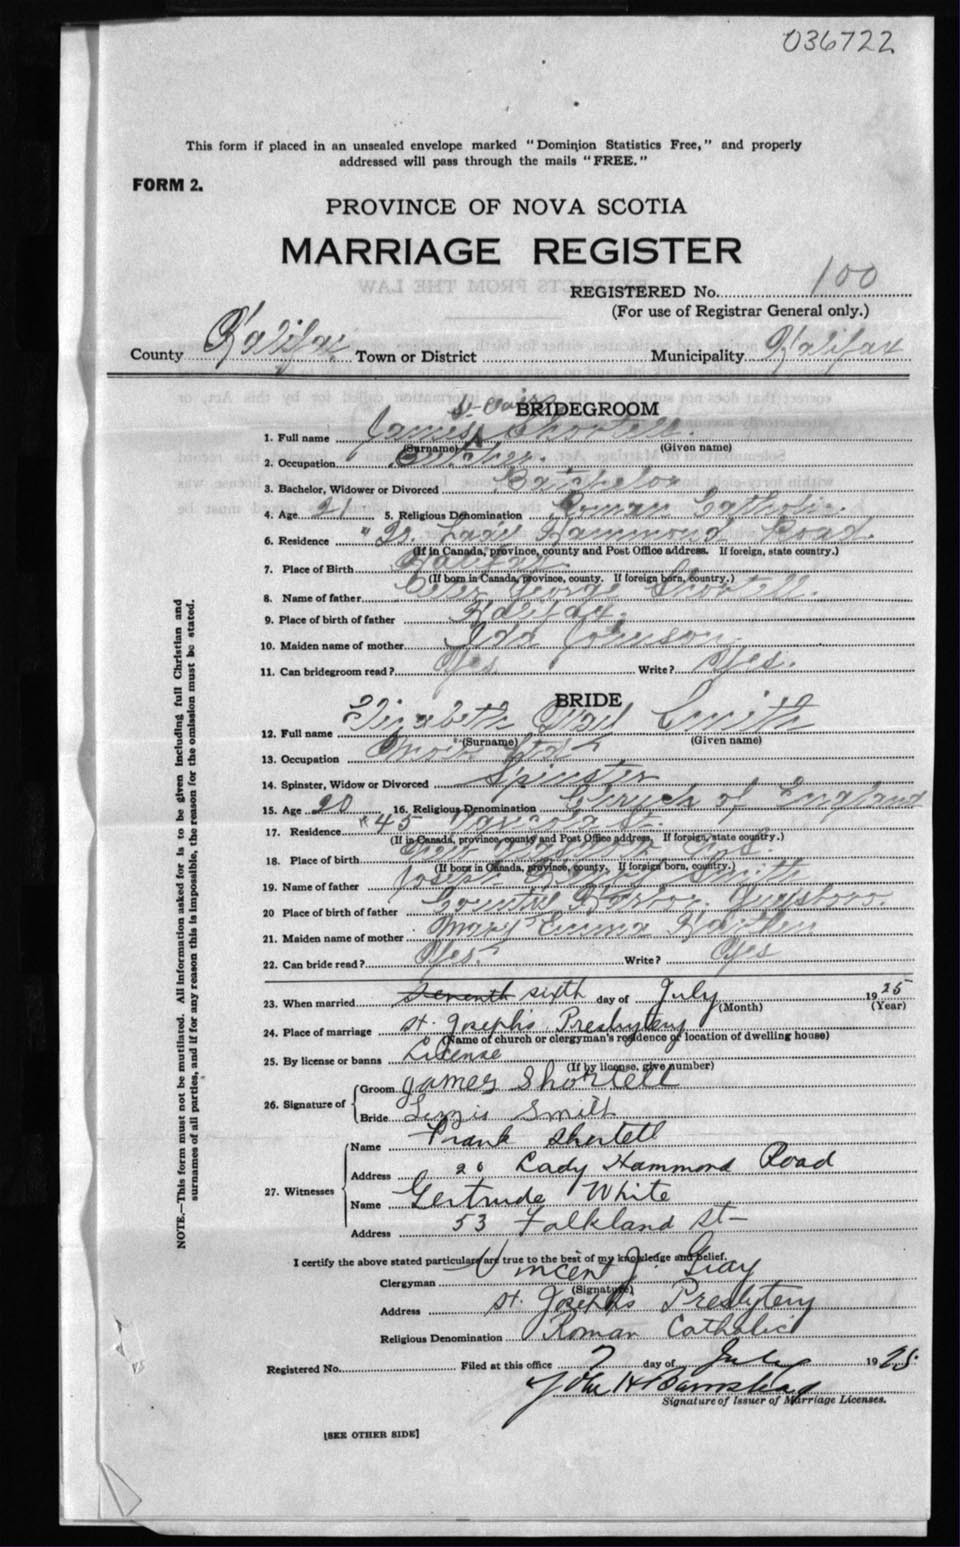 036722
This form if placed in an unsealed envelope marked "Dominion Statistics Free," and properly
addressed will pass through the mails "FREE."
FORM 2.
PROVINCE OF NOVA SCOTIA
MARRIAGE REGISTER
REGISTERED No. 100
(For use of Registrar General only.)
County Halifax Town or District Municipality Halifax
BRIDEGROOM
St. Clair
1. Full name James Shortell.
(Surname) (Given name)
2. Occupation Butcher.
3. Bachelor, Widower or Divorced Bachelor
4. Age 21 5. Religious Denomination Roman Catholic.
6. Residence Lady Hammond Road.
(If in Canada, province, county and Post Office address. If foreign, state country.)
7. Place of Birth Halifax.
(If born in Canada, province, county. If foreign born, country.)
8. Name of father Peter George Shortell.
9. Place of birth of father Halifax.
10. Maiden name of mother Ida Johnson
11. Can bridegroom read? Yes Write? Yes.
BRIDE
12. Full name Elizabeth Smith
(Surname) (Given name)
13. Occupation
14. Spinster, Widow or Divorced Spinster
15. Age 20 16. Religious Denomination Church of England
17. Residence "45 St.
(If in Canada, province, county and Post Office address. If foreign, state country.)
18. Place of birth
(If born in Canada, province, county. If foreign born, country.)
19. Name of father Joseph Smith
20 Place of birth of father Country Harbor. Guysboro.
21. Maiden name of mother Mary Emma
22. Can bride read? Yes. Write? Yes
23. When married seventh sixth day of July 1925
(Month) (Year)
24. Place of marriage St. Joseph's Presbytery
(Name of church or clergyman's residence or location of dwelling house)
25. By license or banns License
(If by license, give number)
26. Signature of
Groom James Shortell
Bride Lizzie Smith
27. Witnesses
Name Frank Shortell
Address 20 Lady Hammond Road
Name Gertrude White
Address 53 Falkland St
I certify the above stated particulars are true to the best of my knowledge and belief.
Clergyman Vincent J. Gray
(Signature)
Address St. Joseph's Presbytery
Religious Denomination Roman Catholic
Registered No. Filed at this office 7 day of July 1925.
John H Barnstead
Signature of Issuer of Marriage Licenses.
[SEE OTHER SIDE]
NOTE.—This form must not be mutilated. All informations asked for is to be given including full Christian and
surnames of all parties, and if for any reason this is impossible, the reason for the omission must be stated.